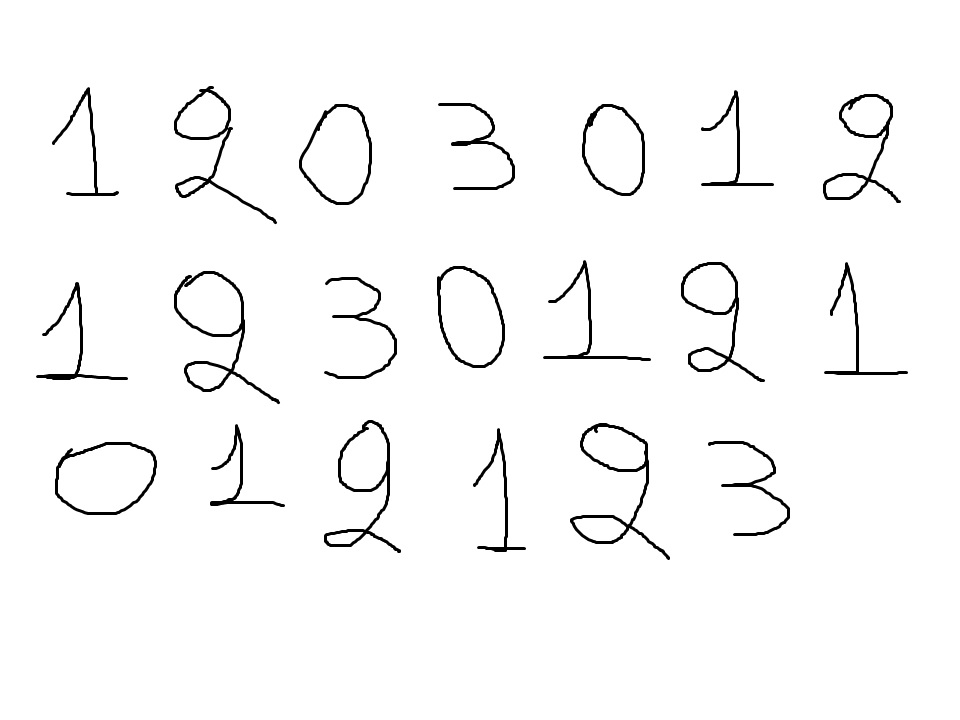 1 2 0 3 0 1 2
1 2 3 0 1 2 1
0 1 2 1 2 3